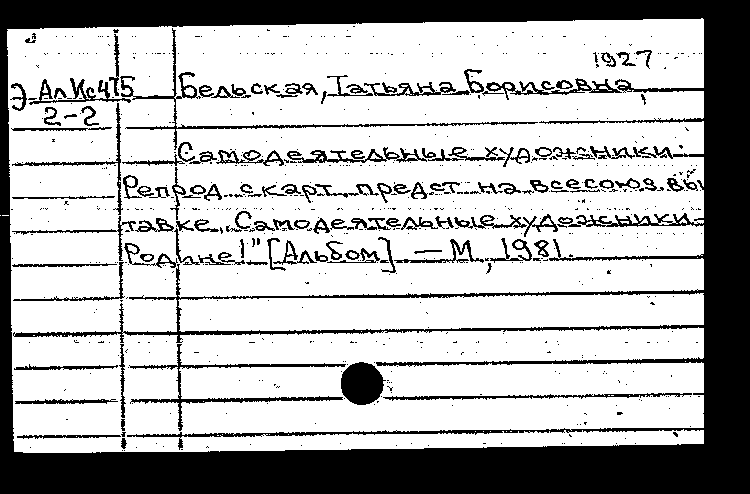 1927
Э АлИс475 Бельская, Татьяна Борисовна,
2-2
Самодеятельные художники:
Репрод. с карт. предст. на всесоюз. вы
тавке „Самодеятельные художники –
Родине!" [Альбом] — М., 1981.